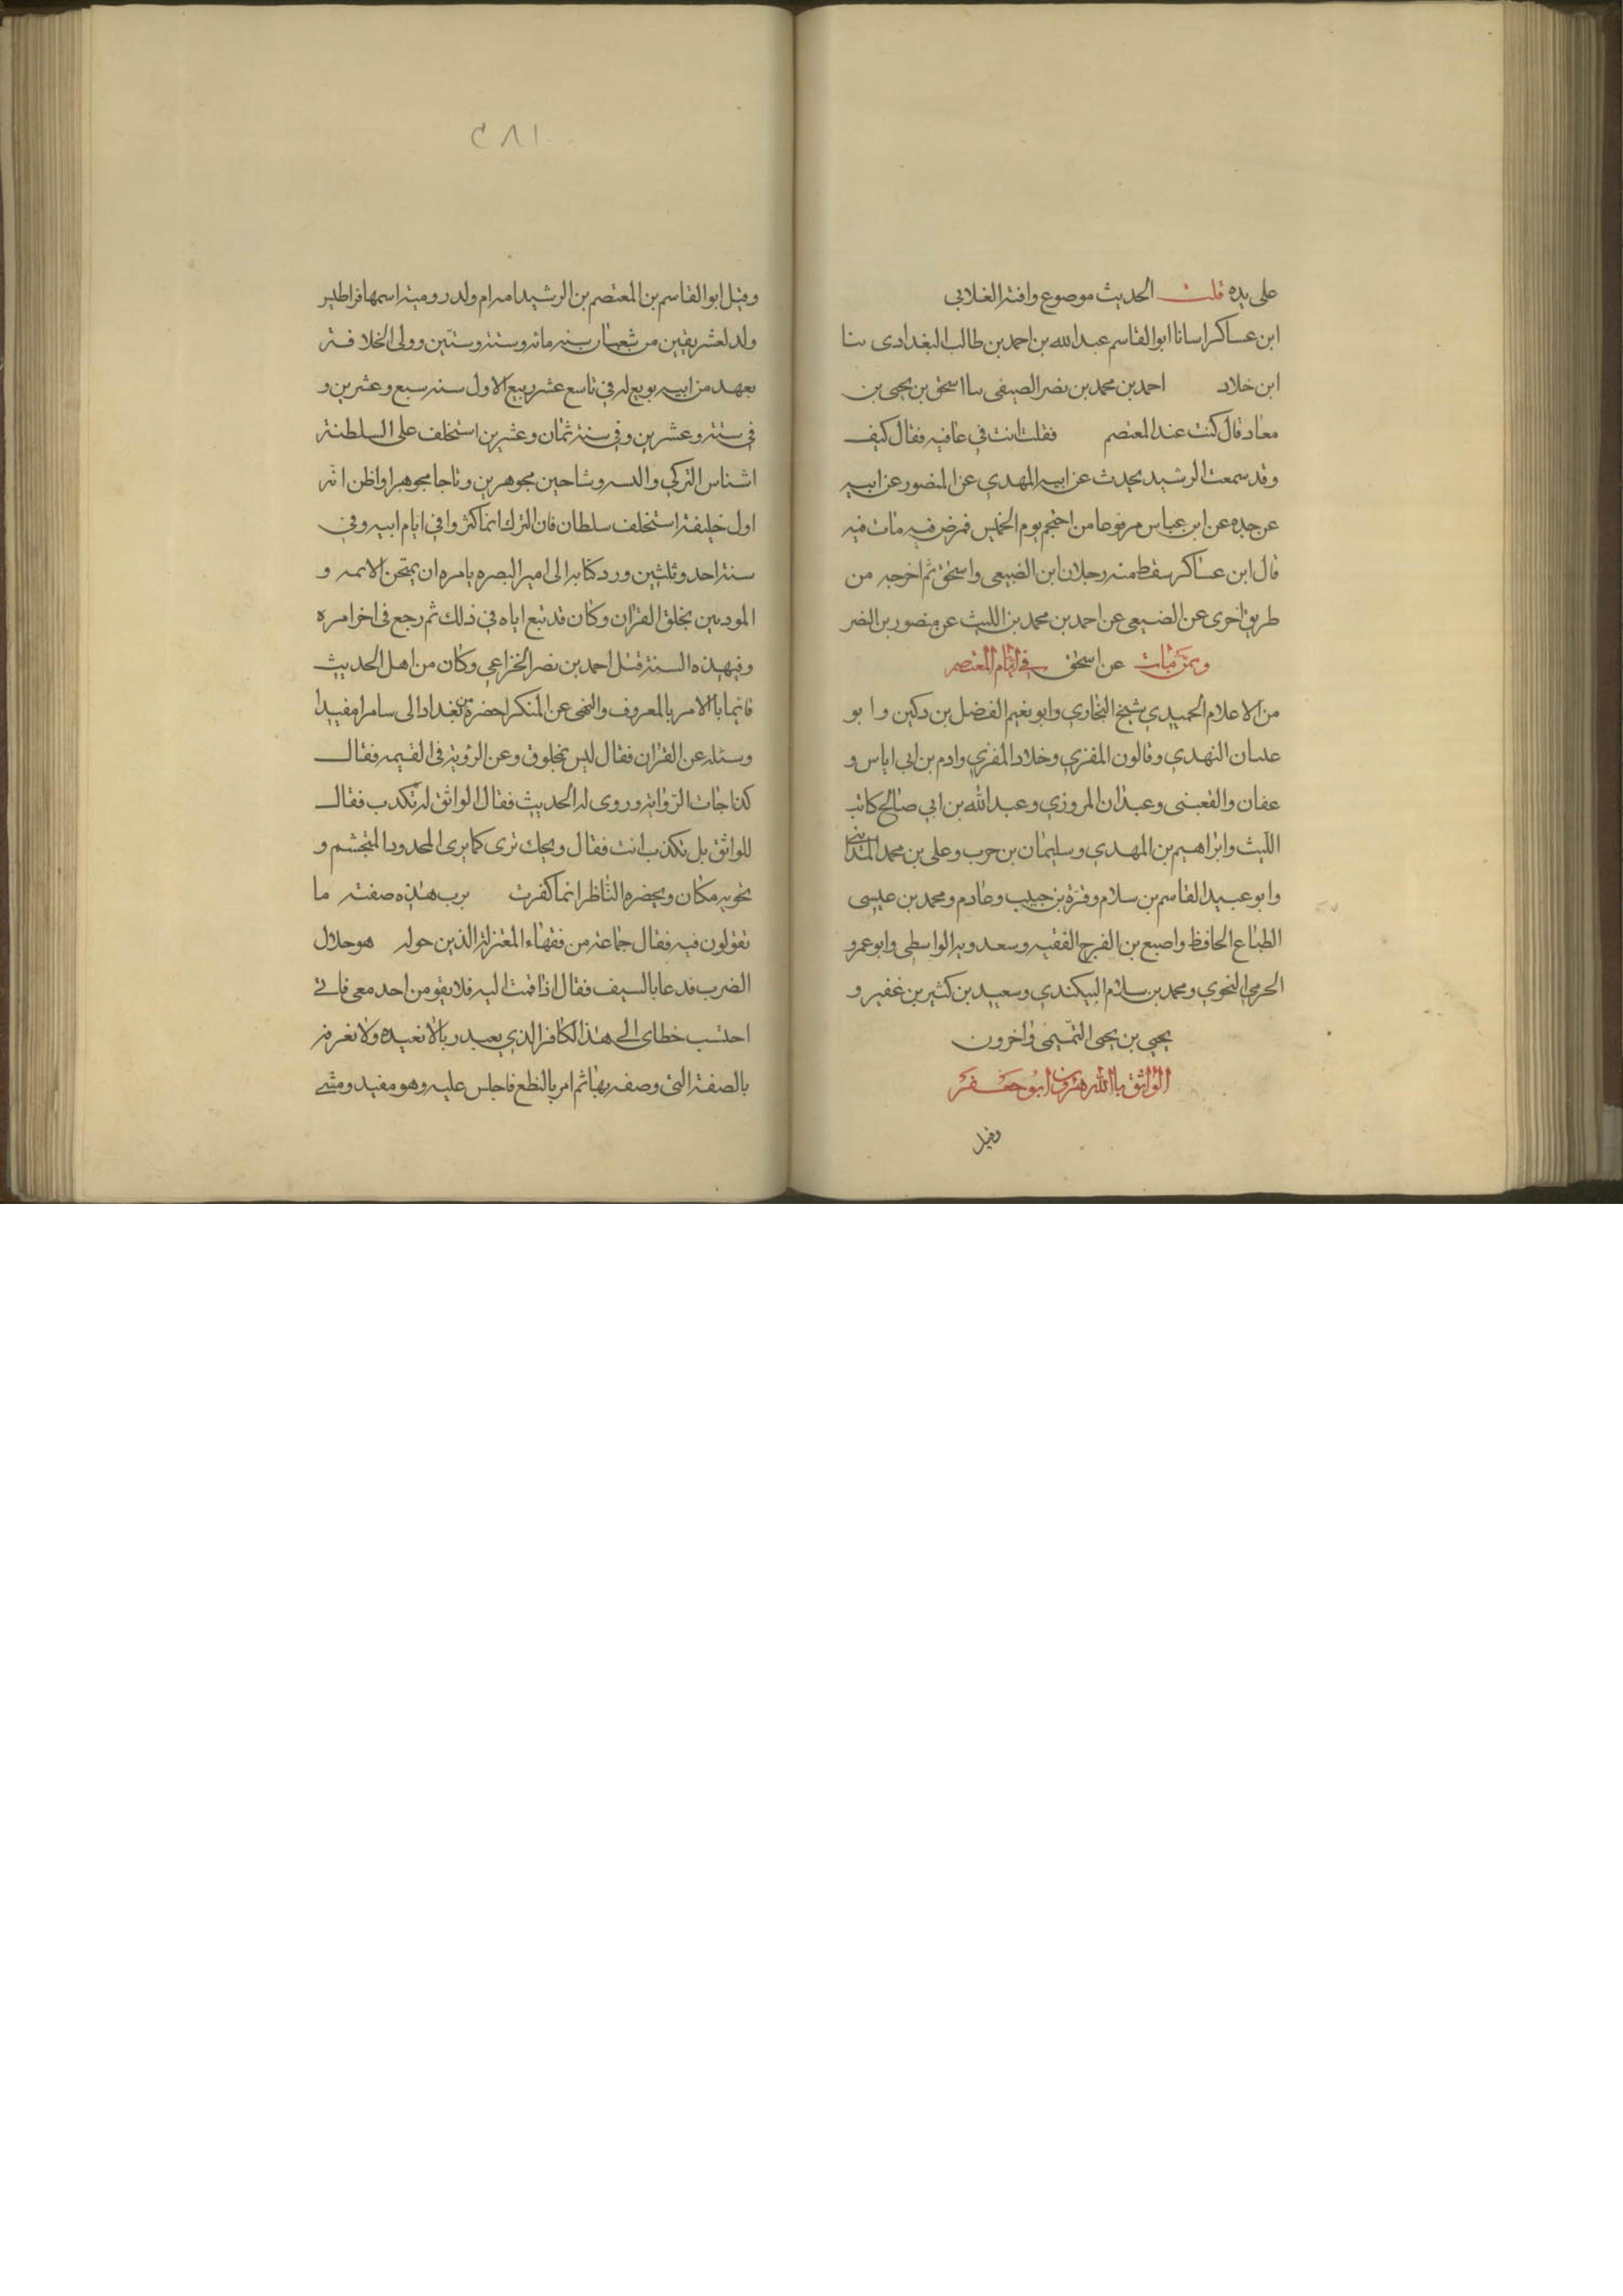 على يده قلت الحديث موضوع وافته الغلابي
ابن عساكر اسانا ابوا القاسم عبد الله بن احمد بن طالب البغدادى ىىا
ابن خلاد احمد بن محمد بن نصر الصيفى ىىا اسحق بن يحيى بن
معاد قال كنت عند المعتصم فقلت انت في عافيه فقال كيف
وقد سمعت الرشيد يحدث عن ابيه المهدي عن المنصور عن ابيه
عن جده عن ابن عباس مرفوعا من احتجم يوم الخميس فمرض فيه مات فيه
قال ابن عساكر سقط منه رجلان ابن الضبيعى واسحق ثم اخرجه من
طريق اخرى عن الضبيعى عن احمد بن محمد بن الليث عن منصور بن النضر
وممن مات عن اسحق في ايام المعتصم
من الاعلام الحميدي شيخ البخاري وابو نعيم الفضل بن دكين وابو
عسان النهدي وقالون المقري وخلاد المقري وادم بن ابي اياس و
عفان والقعبنى وعبدان المروزي وعبد الله بن ابي صالح كاتب
الليث وابراهيم بن المهدي وسليمان بن حرب وعلى بن محمد المدائني
وابو عبيد القاسم بن سلام وقرة بن حبيب وعادم ومحمد بن عيسى
الطباع الحافظ واصبع بن الفرج الفقيه وسعدويه الواسطى وابو عمرو
الحرمي النحوي ومحمد بن سلام البيكندي وسعيد بن كثير بن غفير و
يحيى بن يحيى التميمى واخرون
الواثق باالله هرون ابو جعفر
وقيل
٢٨١
وقيل ابوا القاسم بن المعتصم بن الرشيد امه ام ولد رومية اسمها قراطير
ولد لعشر بقين من شعبان سنه مائه وسته وستين وولى الخلافة
بعهد من ابيه بويع له في تاسع عشر ربيع الاول سنه سبع وعشرين و
في سته وعشرين وفي سنة ثمان وعشرين استخلف على السلطنة
اشناس التركي والبسه وشاحين مجوهرين وتاجا مجوهرا واظن انه
اول خليفة استخلف سلطان فان الترك انما كثروا في ايام ابيه وفي
سنة احد وثلثين ورد كتابه الى امير البصره يامره ان يمتحن الائمه و
الموذنين بخلق القران وكان قد تبع اياه في ذلك ثم رجع فى اخر امره
وفيهذه السنة قتل احمد بن نصر الخزاعي وكان من اهل الحديث
قائما باالامر بالمعروف والنهى عن المنكر احضره من بغداد الى سامرا مقيدا
وسئله عن القران فقال ليس بمخلوق وعن الرؤية فى القيمه فقال
كذا جات الرواية وروى له الحديث فقال الواثق له تكدب فقال
للواثق بل تكذب انت فقال ويحك ترى كما يرى المحدود المتجشم و
يحويه مكان ويحضره الناظر انما كفرت برب هذه صفته ما
تقولون فيه فقال جماعة من فقهاء المعتزلة الذين حوله هو حلال
الضرب فدعا بالسيف فقال اذا قمت اليه فلا يقومن احد معى فاني
احتسب خطاى الى هذا الكافر الذي يعبد ربا لا نعبده ولا نعرفه
بالصفة التى وصفه بها ثم امر بالنطع فاجلس عليه وهو مقيد ومشى